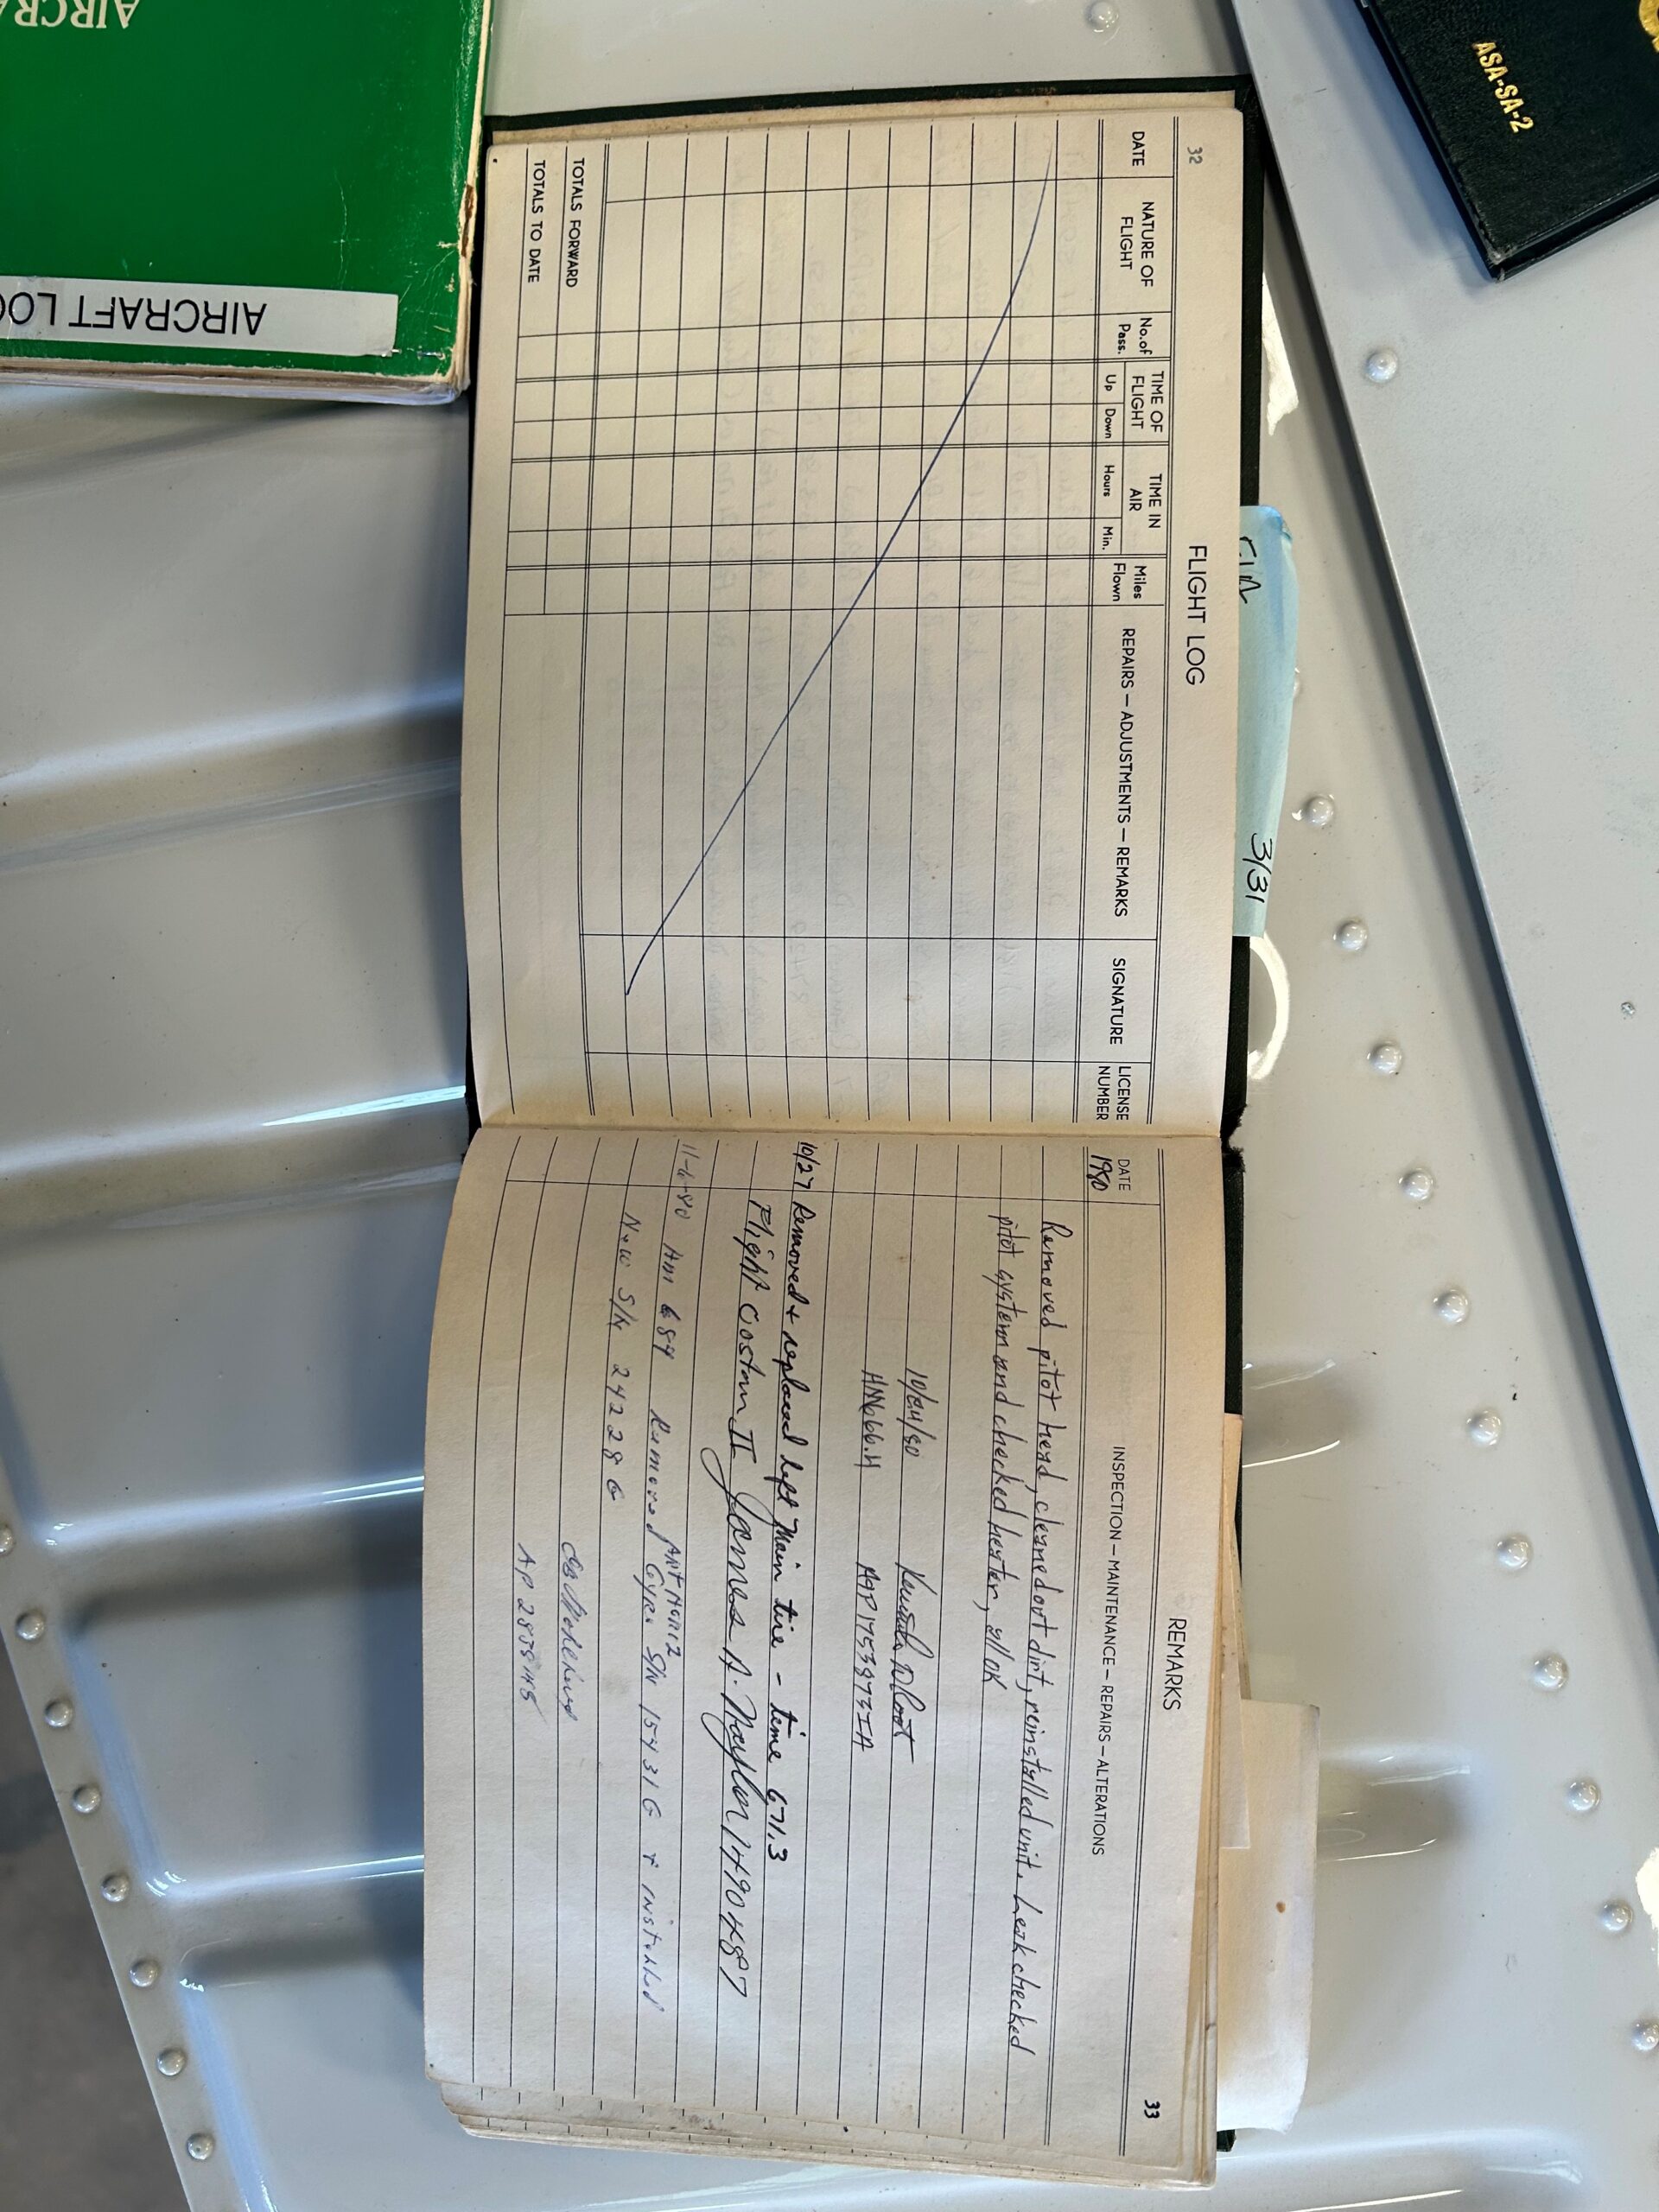 AIRCRA
AIRCRAFT LO
ASA-SA-2
3/31
32
FLIGHT LOG
DATE
NATURE OF FLIGHT
No. of Pass.
TIME OF FLIGHT
Up
Down
TIME IN AIR
Hours
Min.
Miles Flown
REPAIRS — ADJUSTMENTS — REMARKS
SIGNATURE
LICENSE NUMBER
TOTALS FORWARD
TOTALS TO DATE
33
REMARKS
DATE
INSPECTION — MAINTENANCE — REPAIRS — ALTERATIONS
1980
Removed pitot head, cleaned out dirt, reinstalled unit. Leak checked
pitot system and checked heater, all OK
10/24/80
HM666.H
A&P1753873IA
10/27 Removed + replaced left Main tire - time 671.3
Flight Costom II James A. Naylon 1490487
11-6-80 HM 684 Removed ART HORIZ Gyro S/N 15431G + installed
New S/N 24228G
AP 2838445